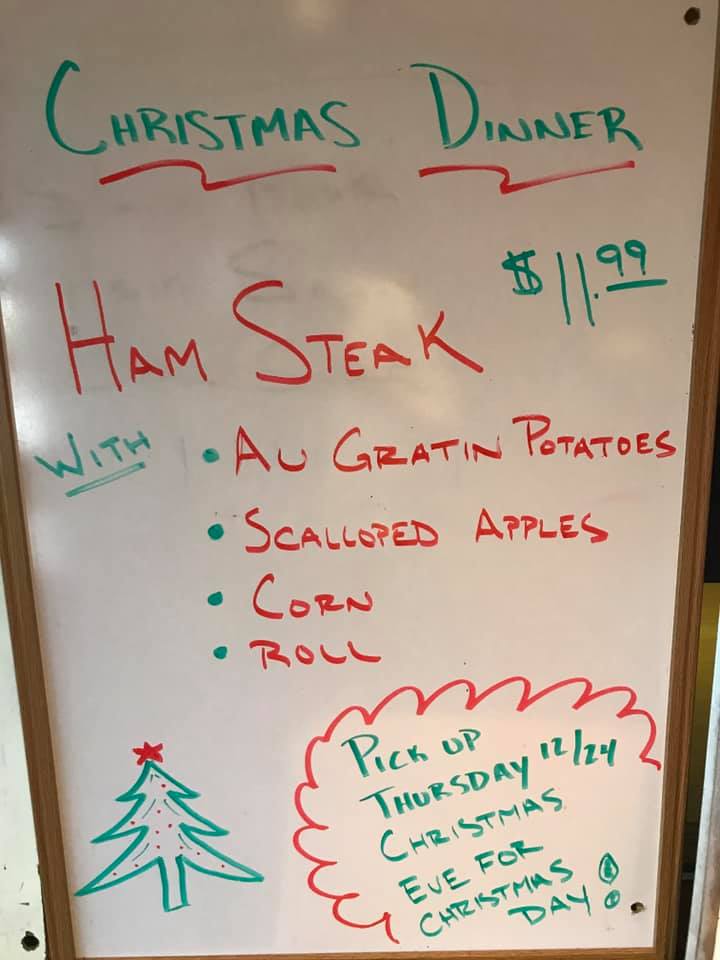 CHRISTMAS DINNER
$11.99
HAM STEAK
WITH • AU GRATIN POTATOES
• SCALLOPED APPLES
• CORN
• ROLL
PICK UP
THURSDAY 12/24
CHRISTMAS
EVE FOR
CHRISTMAS
DAY!